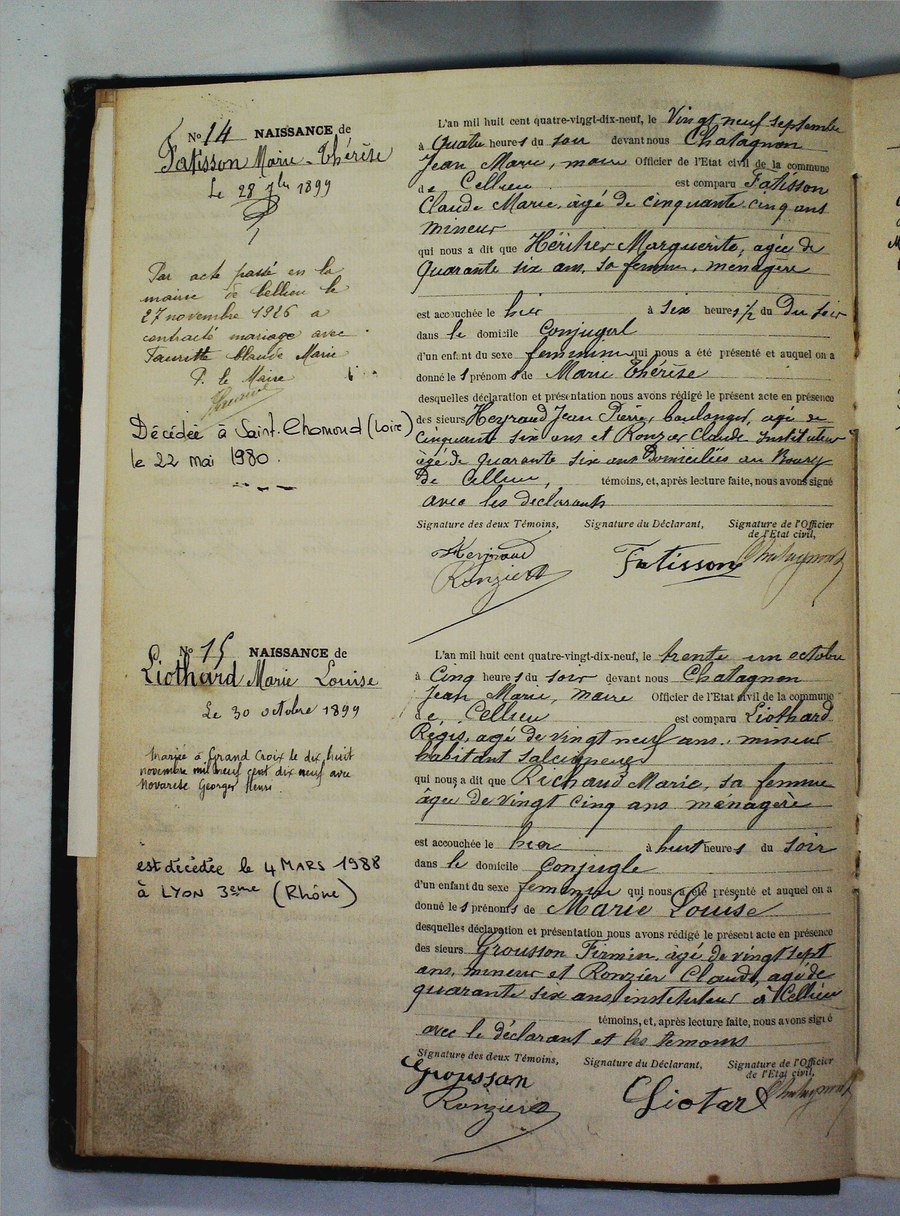 No 14 NAISSANCE de
Fatisson Marie-Thérèse
Le 28 7bre 1899
Par acte passé en la
mairie de Cellieu le
27 novembre 1926 a
contracté mariage avec
Faurette Claude Marie
P. le Maire
Décédée à Saint-Chamond (Loire)
le 22 mai 1980.
L'an mil huit cent quatre-vingt-dix-neuf, le Vingt neuf septembre
à Quatre heures du soir devant nous Chatagnon
Jean Marie, maire Officier de l'Etat civil de la commune
de Cellieu est comparu Fatisson
Claude Marie, âgé de cinquante-cinq ans
mineur
qui nous a dit que Héritier Marguerite, agée de
Quarante six ans, sa femme, ménagère
est accouchée le hier à six heures 1/2 du Du soir
dans le domicile Conjugal
d'un enfant du sexe feminin qui nous a été présenté et auquel on a
donné les prénoms de Marie Thérèse
desquelles déclaration et présentation nous avons rédigé le présent acte en présence
des sieurs Heyraud Jean Pierre, boulanger, agé de
Cinquante six ans et Ronzier Claude Instituteur
âgé de quarante six ans Domiciliés au Bourg
De Cellieu, témoins, et, après lecture faite, nous avons signé
avec les declarants
Signature des deux Témoins, Signature du Déclarant, Signature de l'Officier
de l'Etat civil,
Heyraud
Ronzier
Fatisson
Chatagnon
No 15 NAISSANCE de
Liothard Marie Louise
Le 30 octobre 1899
Mariée à Grand Croix le dix huit
novembre mil neuf cent dix neuf avec
Novarese Georges Henri
est décédée le 4 MARS 1988
à LYON 3eme (Rhône)
L'an mil huit cent quatre-vingt-dix-neuf, le trente un octobre
à Cinq heures du soir devant nous Chatagnon
Jean Marie, maire Officier de l'Etat civil de la commune
de Cellieu est comparu Liothard
Régis, agé de vingt neuf ans, mineur
habitant Salcigneux
qui nous a dit que Richaud Marie, sa femme
âgée de vingt cinq ans ménagère
est accouchée le hier à huit heures du soir
dans le domicile Conjugle
d'un enfant du sexe feminin qui nous a été présenté et auquel on a
donné les prénoms de Marie Louise
desquelles déclaration et présentation nous avons rédigé le présent acte en présence
des sieurs Grousson Firmin, âgé de vingt sept
ans, mineur et Ronzier Claude, agé de
quarante six ans, instituteur à Cellieu
témoins, et, après lecture faite, nous avons signé
avec le déclarant et les temoins
Signature des deux Témoins, Signature du Déclarant, Signature de l'Officier
de l'Etat civil,
Grousson
Ronzier
Liotard
Chatagnon